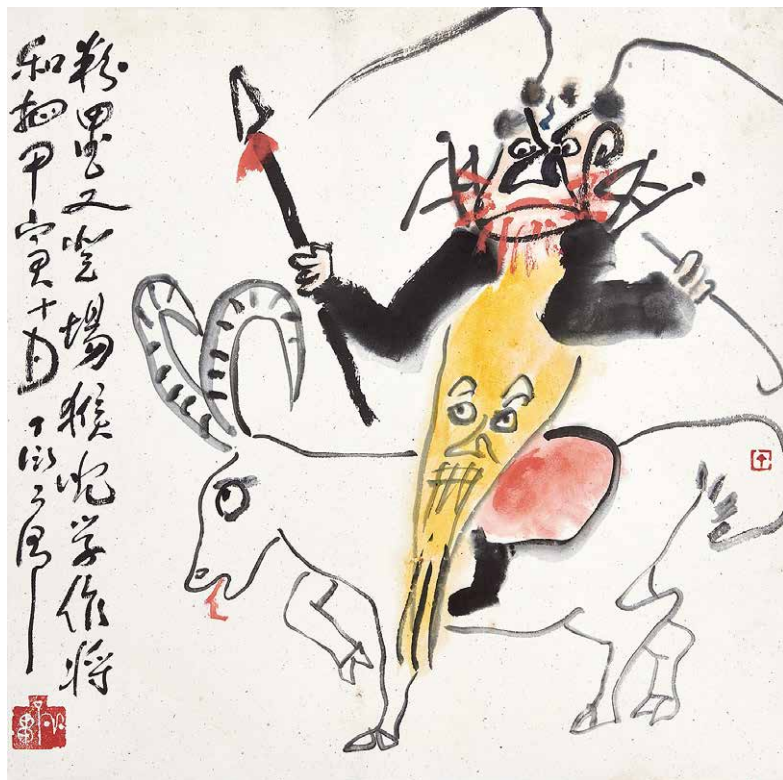 粉墨又登場猴兒學作將
和相甲寅十月丁衍庸